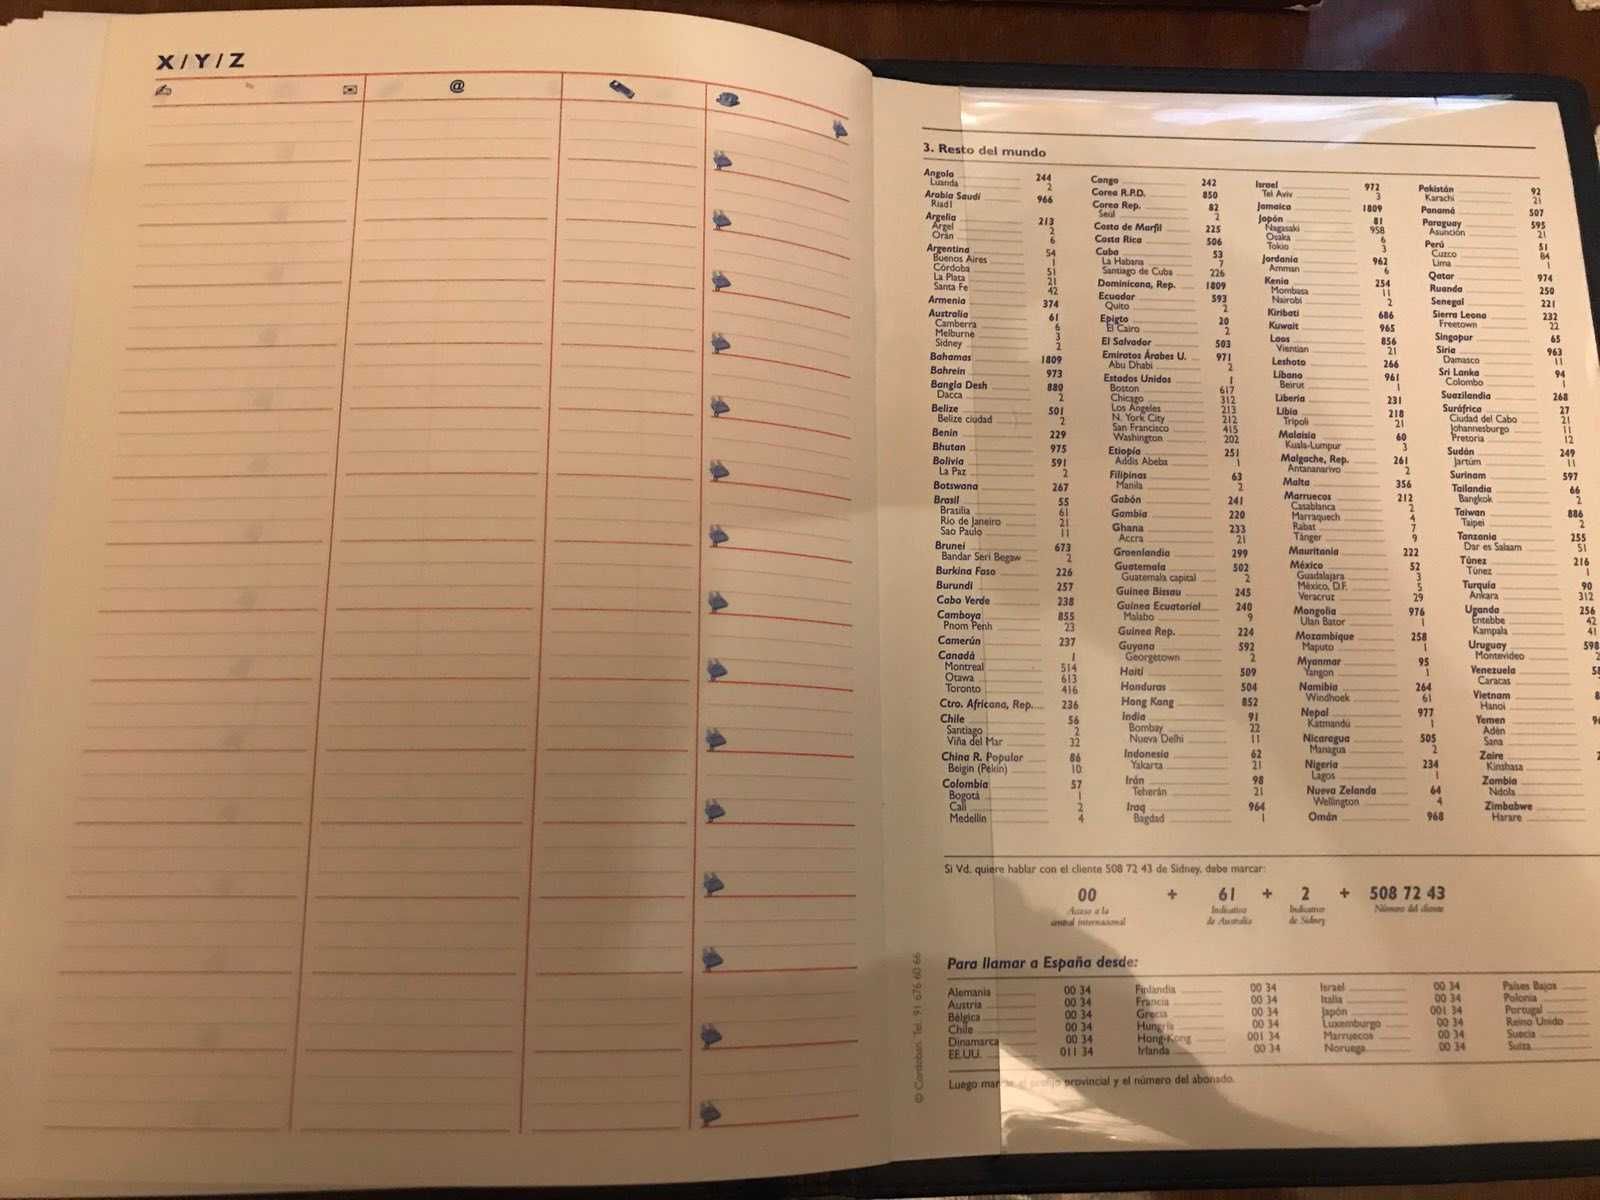 X / Y / Z
@
3. Resto del mundo
Angola 244
Luanda 2
Arabia Saudí 966
Riad 1
Argelia 213
Argel 2
Orán 6
Argentina 54
Buenos Aires 1
Córdoba 51
La Plata 21
Santa Fe 42
Armenia 374
Australia 61
Camberra 6
Melburne 3
Sidney 2
Bahamas 1809
Bahrein 973
Bangla Desh 880
Dacca 2
Belize 501
Belize ciudad 2
Benin 229
Bhutan 975
Bolivia 591
La Paz 2
Botswana 267
Brasil 55
Brasilia 61
Río de Janeiro 21
Sao Paulo 11
Brunei 673
Bandar Seri Begaw 2
Burkina Faso 226
Burundi 257
Cabo Verde 238
Camboya 855
Pnom Penh 23
Camerún 237
Canadá 1
Montreal 514
Otawa 613
Toronto 416
Ctro. Africana, Rep.... 236
Chile 56
Santiago 2
Viña del Mar 32
China R. Popular 86
Beigin (Pekín) 10
Colombia 57
Bogotá 1
Cali 2
Medellín 4
Congo 242
Corea R.P.D. 850
Corea Rep. 82
Seúl 2
Costa de Marfil 225
Costa Rica 506
Cuba 53
La Habana 7
Santiago de Cuba 226
Dominicana, Rep. 1809
Ecuador 593
Quito 2
Epigto 20
El Cairo 2
El Salvador 503
Emiratos Árabes U. 971
Abu Dhabi 2
Estados Unidos 1
Boston 617
Chicago 312
Los Angeles 213
N. York City 212
San Francisco 415
Washington 202
Etiopía 251
Addis Abeba 1
Filipinas 63
Manila 2
Gabón 241
Gambia 220
Ghana 233
Accra 21
Groenlandia 299
Guatemala 502
Guatemala capital 2
Guinea Bissau 245
Guinea Ecuatorial 240
Malabo 9
Guinea Rep. 224
Guyana 592
Georgetown 2
Haití 509
Honduras 504
Hong Kong 852
India 91
Bombay 22
Nueva Delhi 11
Indonesia 62
Yakarta 21
Irán 98
Teherán 21
Iraq 964
Bagdad 1
Israel 972
Tel Aviv 3
Jamaica 1809
Japón 81
Nagasaki 958
Osaka 6
Tokio 3
Jordania 962
Amman 6
Kenia 254
Mombasa 11
Nairobi 2
Kiribati 686
Kuwait 965
Laos 856
Vientian 21
Leshoto 266
Líbano 961
Beirut 1
Liberia 231
Libia 218
Trípoli 21
Malaisia 60
Kuala-Lumpur 3
Malgache, Rep. 261
Antananarivo 2
Malta 356
Marruecos 212
Casablanca 2
Marraquech 4
Rabat 7
Tánger 9
Mauritania 222
México 52
Guadalajara 3
México, D.F. 5
Veracruz 29
Mongolia 976
Ulan Bator 1
Mozambique 258
Maputo 1
Myanmar 95
Yangon 1
Namibia 264
Windhoek 61
Nepal 977
Katmandú 1
Nicaragua 505
Managua 2
Nigeria 234
Lagos 1
Nueva Zelanda 64
Wellington 4
Omán 968
Pakistán 92
Karachi 21
Panamá 507
Paraguay 595
Asunción 21
Perú 51
Cuzco 84
Lima 1
Qatar 974
Ruanda 250
Senegal 221
Sierra Leona 232
Freetown 22
Singapur 65
Siria 963
Damasco 11
Sri Lanka 94
Colombo 1
Suazilandia 268
Suráfrica 27
Ciudad del Cabo 21
Johannesburgo 11
Pretoria 12
Sudán 249
Jartúm 11
Surinam 597
Tailandia 66
Bangkok 2
Taiwan 886
Taipei 2
Tanzania 255
Dar es Salaam 51
Túnez 216
Túnez 1
Turquía 90
Ankara 312
Uganda 256
Entebbe 42
Kampala 41
Uruguay 598
Montevideo 2
Venezuela
Caracas
Vietnam
Hanoi
Yemen
Adén
Sana
Zaire
Kinshasa
Zambia
Ndola
Zimbabwe
Harare
Si Vd. quiere hablar con el cliente 508 72 43 de Sidney, debe marcar:
00 + 61 + 2 + 508 72 43
Acceso a la central internacional
Indicativo de Australia
Indicativo de Sidney
Número del cliente
Para llamar a España desde:
Alemania 00 34
Austria 00 34
Bélgica 00 34
Chile 00 34
Dinamarca 00 34
EE.UU. 011 34
Finlandia 00 34
Francia 00 34
Grecia 00 34
Hungría 00 34
Hong-Kong 001 34
Irlanda 00 34
Israel 00 34
Italia 00 34
Japón 001 34
Luxemburgo 00 34
Marruecos 00 34
Noruega 00 34
Países Bajos
Polonia
Portugal
Reino Unido
Suecia
Suiza
Luego marcar el prefijo provincial y el número del abonado.
© Cordoban. Tel. 91 676 60 66